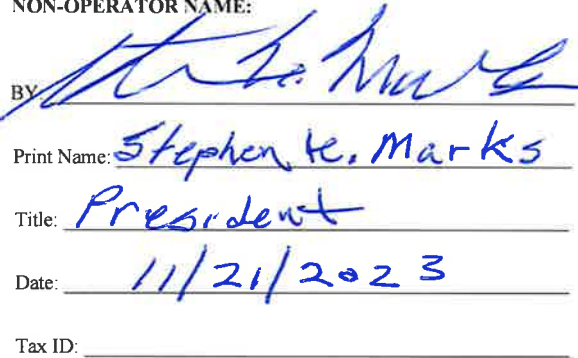 NON-OPERATOR NAME:
BY
Print Name: Stephen K. Marks
Title: President
Date: 11/21/2023
Tax ID: